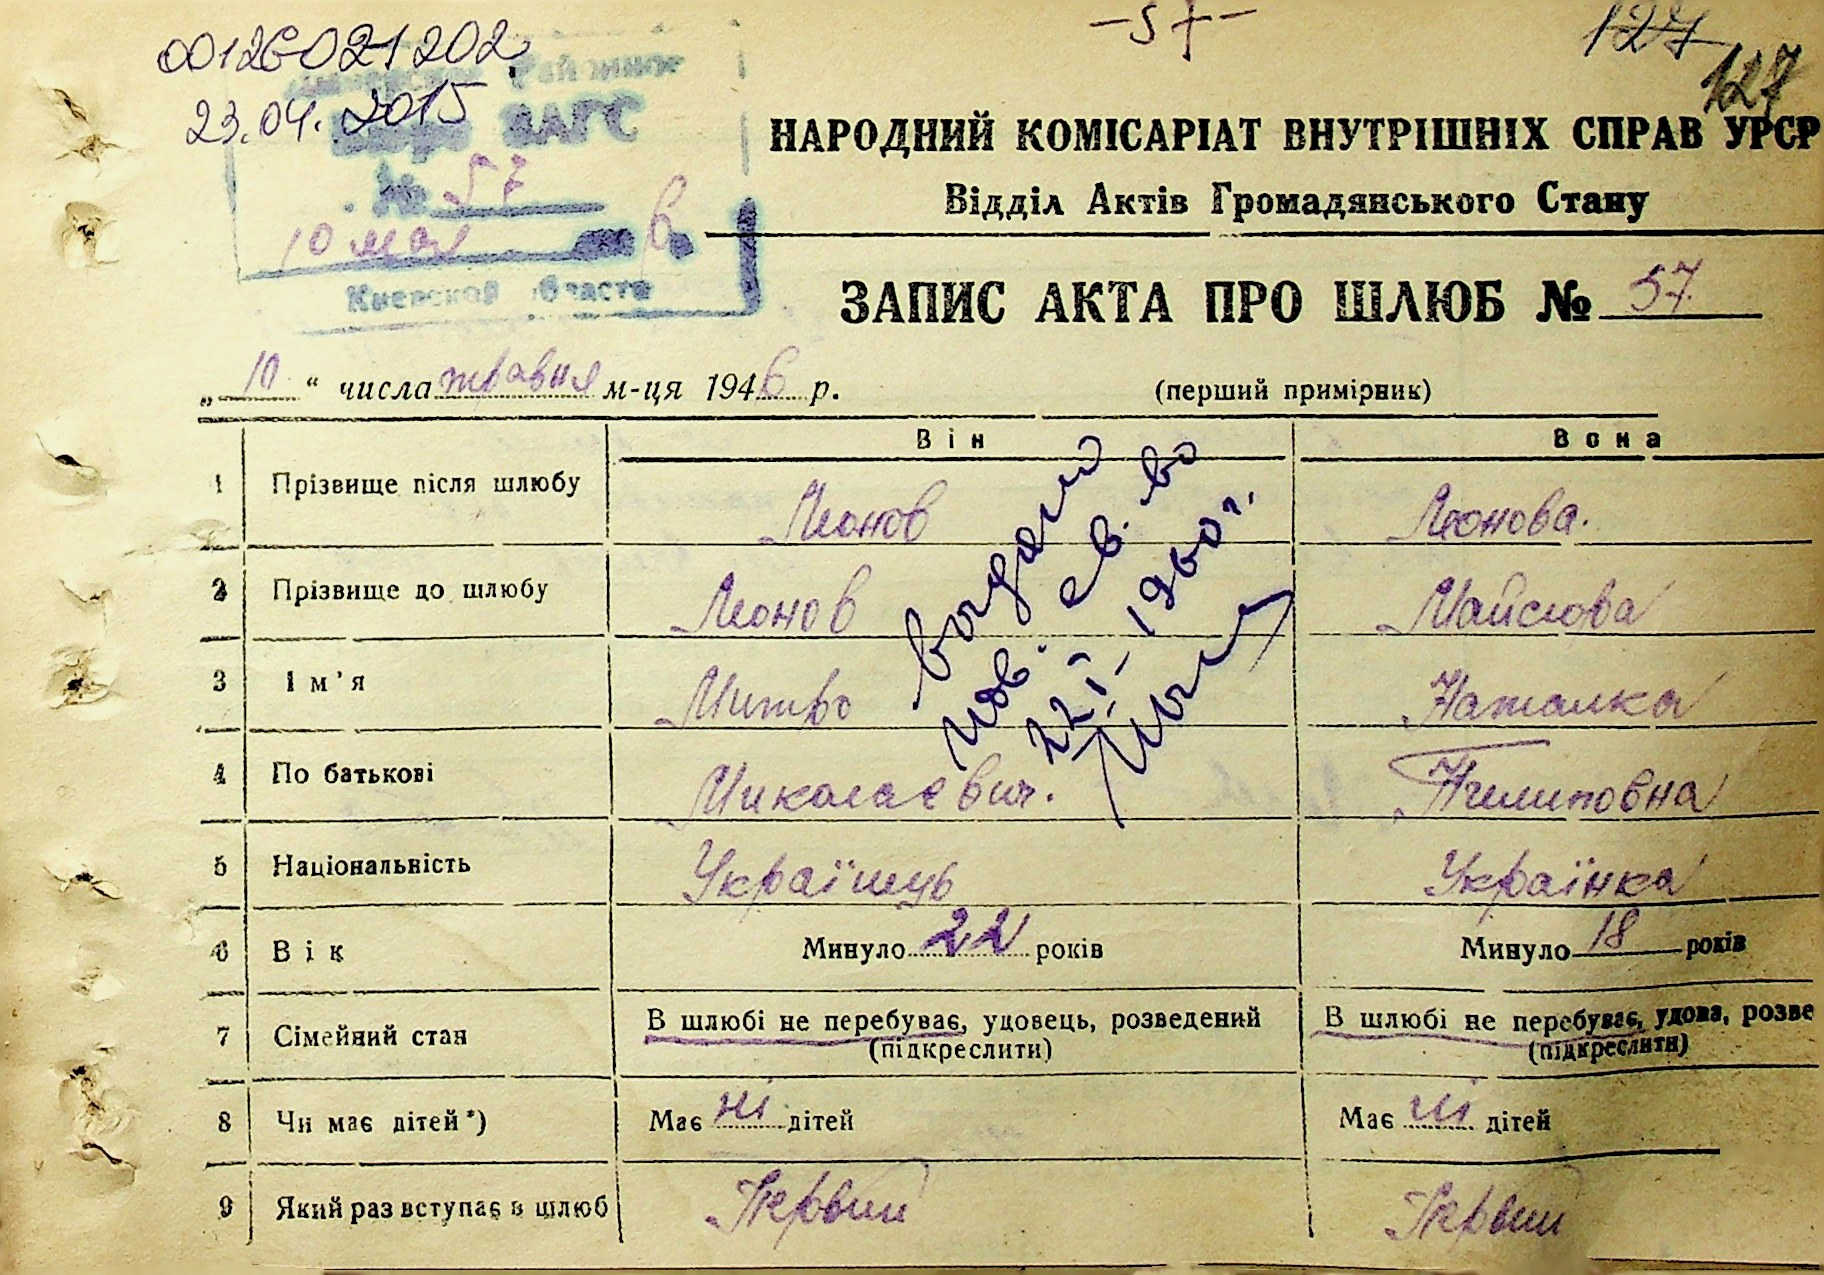 -57-
127
127
00126021202
23.04.2015
Районное
Бюро ЗАГС
№ 57
10 мая 6
Киевской области
НАРОДНИЙ КОМІСАРІАТ ВНУТРІШНІХ СПРАВ УРСР
Відділ Актів Громадянського Стану
ЗАПИС АКТА ПРО ШЛЮБ № 57
„ 10 “ числа травня м-ця 1946 р. (перший примірник)
Він Вона
1 Прізвище після шлюбу Леонов Леонова.
2 Прізвище до шлюбу Леонов
3 Ім'я Митро Наталка
4 По батькові Миколаєвич. Пилиповна
5 Національність Українець Українка
6 Вік Минуло 22 років Минуло 18 років
7 Сімейний стан В шлюбі не перебуває, удовець, розведений В шлюбі не перебуває, удова, розве
(підкреслити) (підкреслити)
8 Чи має дітей*) Має ні дітей Має ні дітей
9 Який раз вступає в шлюб Первий Первий
выдано
пов. св. во
22/I-1960г.